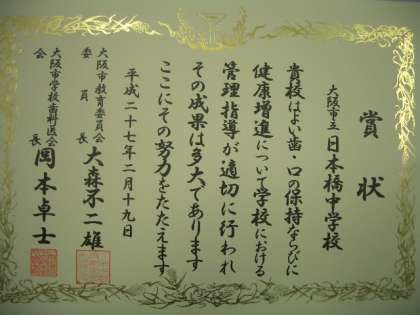 賞状
大阪市立 日本橋中学校
貴校はよい歯・口の保持ならびに
健康増進について学校における
管理指導が適切に行われ
その成果は多大であります
ここにその努力をたたえます
平成二十七年二月十九日
大阪市教育委員会
委員長 大森不二雄
大阪市学校歯科医会
会長 岡本卓士